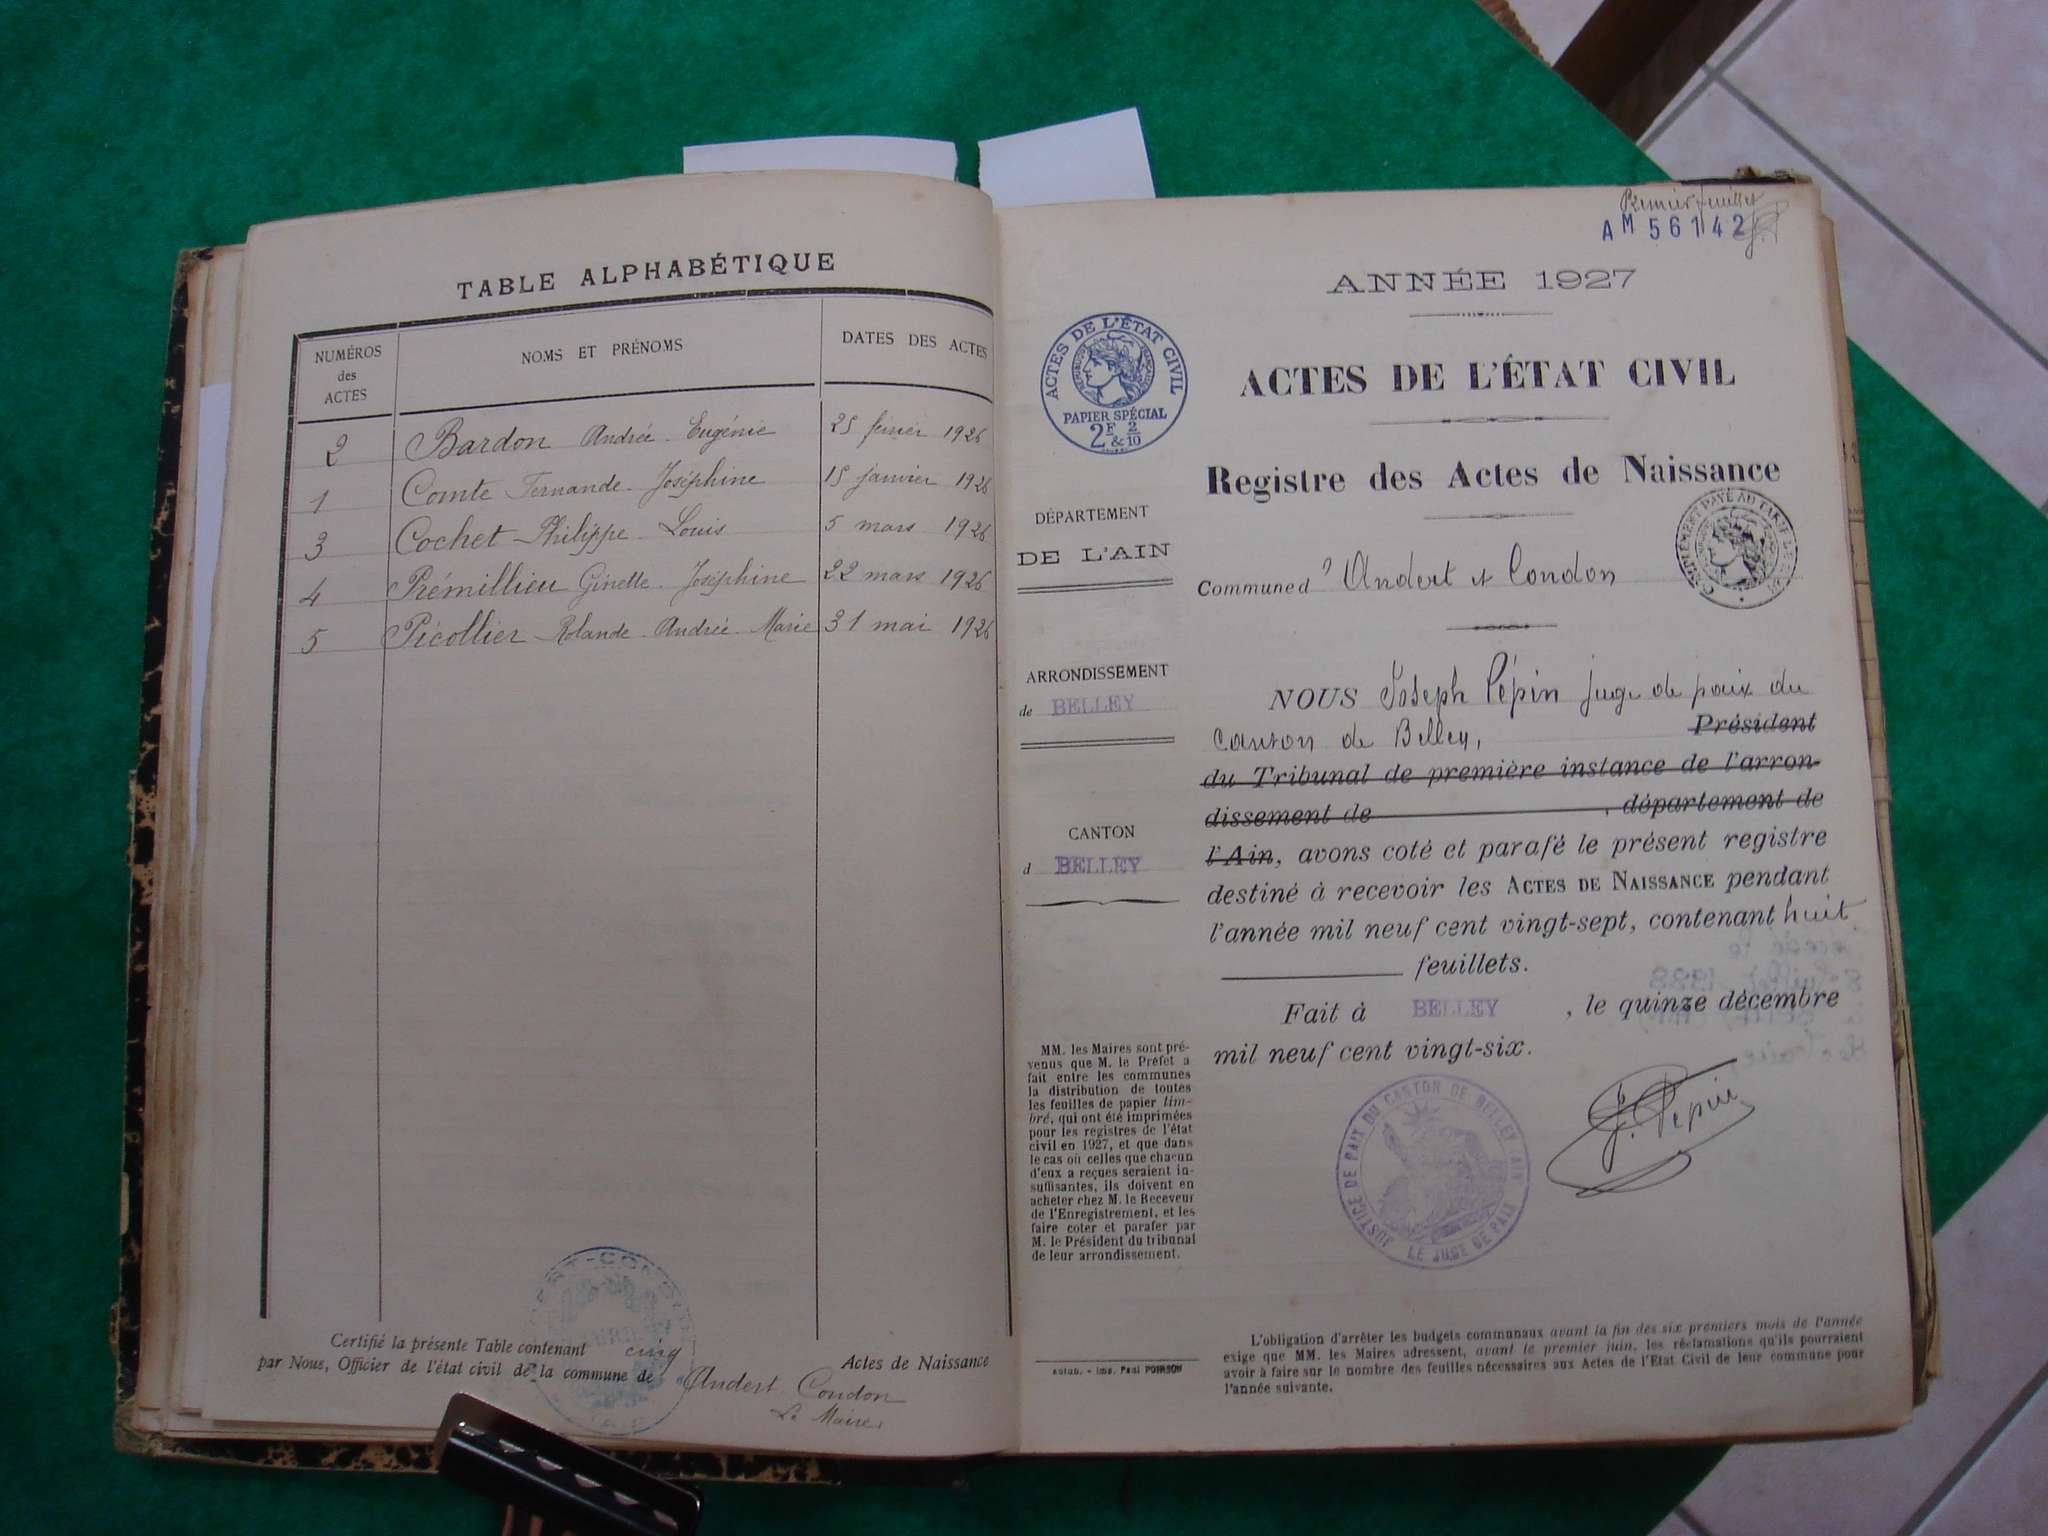 TABLE ALPHABÉTIQUE
NUMÉROS des ACTES
NOMS ET PRÉNOMS
DATES DES ACTES
2 Bardon Andrée Eugénie 25 février 1926
1 Comte Fernande Joséphine 15 janvier 1926
3 Cochet Philippe Louis 5 mars 1926
4 Prémillieu Ginette Joséphine 22 mars 1926
5 Picollier Rolande Andrée Marie 31 mai 1926
Certifié la présente Table contenant cinq Actes de Naissance
par Nous, Officier de l'état civil de la commune de Andert Condon
Le Maire
Premier feuillet
AM 56142
ANNÉE 1927
ACTES DE L'ÉTAT CIVIL
PAPIER SPÉCIAL
2F & 2/10
ACTES DE L'ÉTAT CIVIL
Registre des Actes de Naissance
DÉPARTEMENT
DE L'AIN
Commune d'Andert et Condon
ARRONDISSEMENT
de BELLEY
CANTON
d BELLEY
NOUS Joseph Pépin juge de paix du
canton de Belley, Président
du Tribunal de première instance de l'arron-
dissement de , département de
l'Ain, avons coté et parafé le présent registre
destiné à recevoir les ACTES DE NAISSANCE pendant
l'année mil neuf cent vingt-sept, contenant huit
feuillets.
Fait à BELLEY, le quinze décembre
mil neuf cent vingt-six.
J. Pépin
JUSTICE DE PAIX DU CANTON DE BELLEY AIN
LE JUGE DE PAIX
MM. les Maires sont pré-
venus que M. le Préfet a
fait entre les communes
la distribution de toutes
les feuilles de papier tim-
bré, qui ont été imprimées
pour les registres de l'état
civil en 1927, et que dans
le cas où celles que chacun
d'eux a reçues seraient in-
suffisantes, ils doivent en
acheter chez M. le Receveur
de l'Enregistrement, et les
faire coter et parafer par
M. le Président du tribunal
de leur arrondissement.
- Imp. Paul POIRSON
L'obligation d'arrêter les budgets communaux avant la fin des six premiers mois de l'année
exige que MM. les Maires adressent, avant le premier juin, les réclamations qu'ils pourraient
avoir à faire sur le nombre des feuilles nécessaires aux Actes de l'Etat Civil de leur commune pour
l'année suivante.